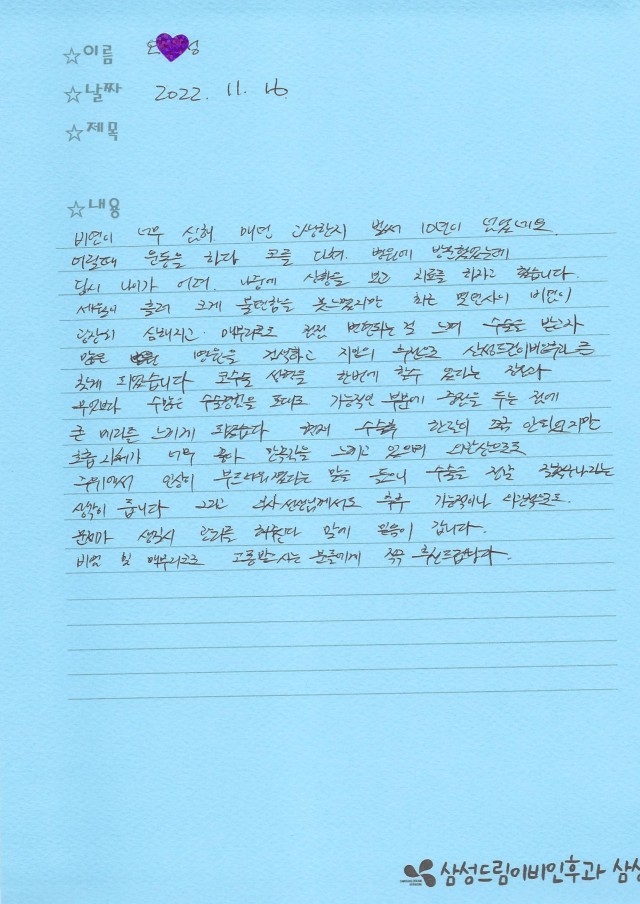 ☆이름 오 성
☆날짜 2022. 11. 16.
☆제목
☆내용
비염이 너무 심해 매번 고생한지 벌써 10년이 넘었네요.
어릴때 운동을 하다 코를 다쳐. 병원에 방문했었는데
당시 나이가 어려. 나중에 상황을 보고 치료를 하자고 했습니다.
세월이 흘러 크게 불편함을 못느꼈지만 최근 몇년사이 비염이
굉장히 심해지고. 매부리코로 점점 변형되는 걸 느껴 수술을 받고자
많은 병원을 검색하고 지인의 추천으로 삼성드림이비인후과를
찾게 되었습니다 코수술 성형을 한번에 할수 있다는 점과
무엇보다 수많은 수술경험을 토대로 가능적인 부분에 중점을 두는 점에
큰 메리트를 느끼게 되었습니다 현재 수술후 한달이 조금 안되었지만
호흡 자체가 너무 좋아 만족감을 느끼고 있으며 외관상으로
주위에서 인상이 부드러워졌다는 말을 들으니 수술을 정말 잘했구나라는
생각이 듭니다 그리고 의사선생님께서도 추후 가능적이나 외관적으로
문제가 생길시 관리를 해주신다 말에 믿음이 갑니다.
비염 및 매부리코로 고통받는 분들에게 적극 추천드립니다.
삼성드림이비인후과 삼성